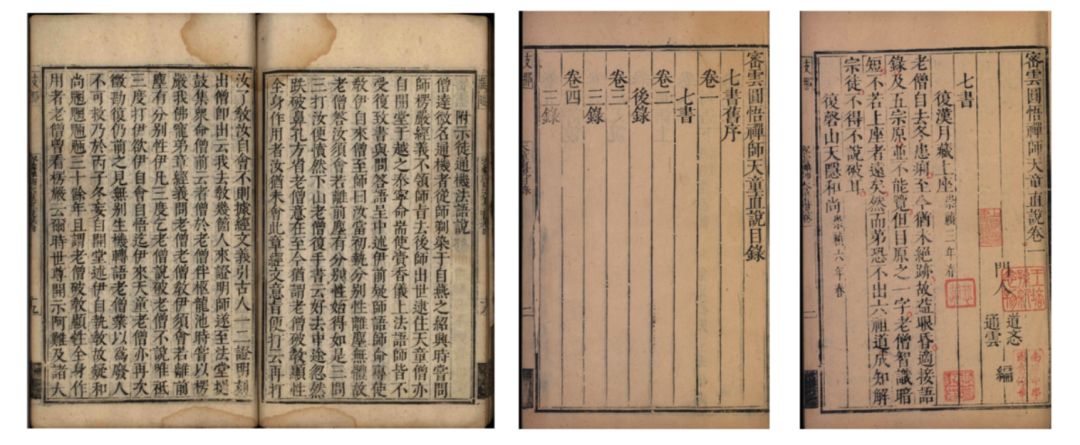 附示徒通機法語說
僧達微名通機者從師剃染于自燕之紹興時嘗問
師楞嚴經義不領師旨去後師出世逮住天童僧亦
自開堂于越之泰寧命耑使賫香儀上法語師皆不
受復致書與問答語至中述伊前疑師語師命專使
敎伊自來僧至師曰汝當初執分別性離塵無體故
老僧汝須會若離前塵有分別性始得如是三問
三打汝便憤然下山老僧復手書云好去中途忽然
跌破鼻孔方省老僧意在至今猶謂老僧破敎顯性
全身作用者汝猶未會此章經文意旨便打云再打
汝了敎汝自會不則據經文義引古人一二證明刻
出僧卽出云我去敎幾箇人來證明師遂至法堂撾
鼓集衆命僧前云者僧於老僧伴柩龍池時嘗以楞
嚴我佛寵弟章經義問老僧老僧敎伊須會若離前
塵有分別性伊凡三度乞老僧說破老僧不說唯祗
三度打伊欲伊自會自悟迄伊來天童老僧亦再次
徵勘復仍前之見無別生機轉語老僧業以爲廢人
不可救乃於丙子冬妄自開堂述伊自執敎故疑和
尚三十餘年且謂老僧破敎顯性全身作
用者老僧曾看楞嚴云爾時世尊開示阿難及諸大
密雲圓悟禪師天童直說目錄
七書舊序
卷一
七書
卷二
後錄
卷三
三錄
卷四
三錄
密雲圓悟禪師天童直說卷一
門人 道忞 通雲 編
七書
復漢月藏上座 崇禎三年春
老僧自去冬患痢至今猶未絕跡故益眼昏適接語
錄及五宗原並不能覽但目原之一字老僧智識暗
短不若上座者遠矣然而弟恐不出六祖道成知解
宗徒不得不說破耳
復磬山天隱和尚 崇禎六年春